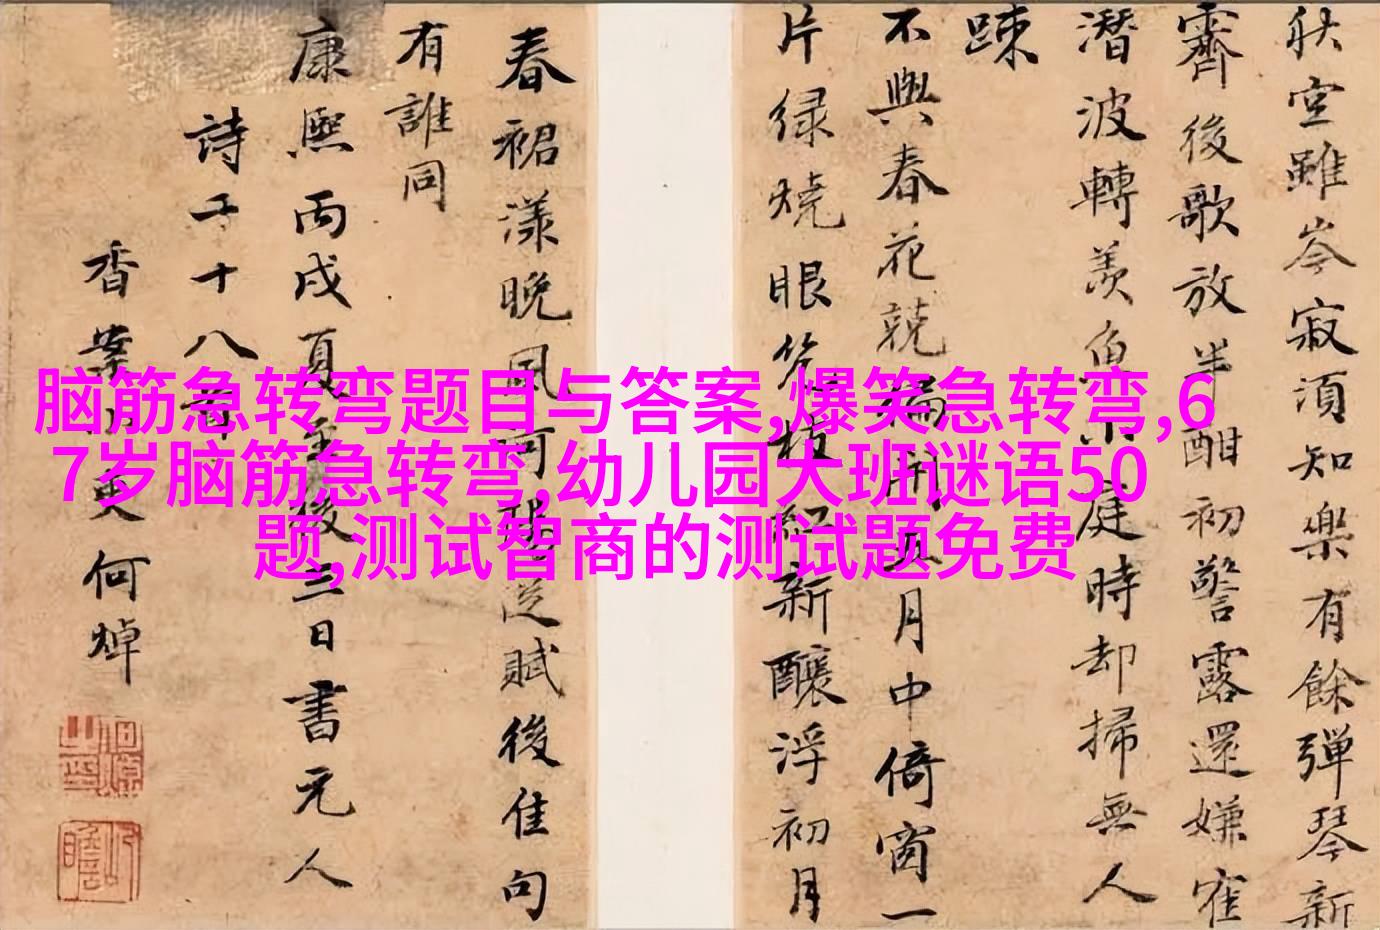 秋空雖岑寂須知樂有餘彈琴新
霽後歌放半酣初警露還嫌
潛波轉羨魚小庭時却掃無人
踈
不與春花競 開五月中倚窗一
片緑燒眼 枝紅新釀浮初月
春裙漾晚風 賦後佳句
有誰同
康熙丙戌夏至後三日書元人
詩二十八首
香案小吏何焯
脑筋急转弯题目与答案,爆笑急转弯,6
7岁脑筋急转弯,幼儿园大班谜语50
题,测试智商的测试题免费